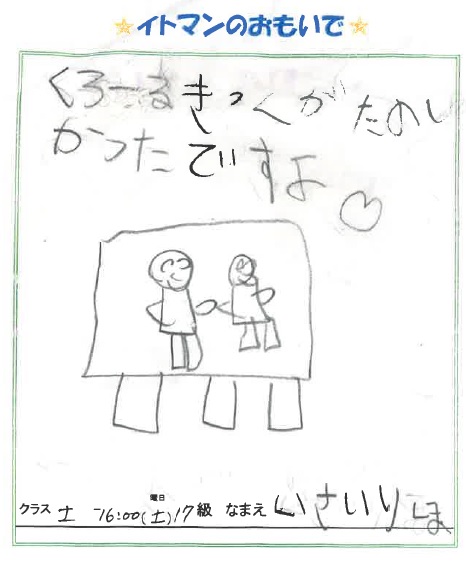 ☆イトマンのおもいで☆
くろーるきっくがたのし
かったでぃすよ♡
クラス 土 16:00(土)17級 なまえ いさいりほ
曜日